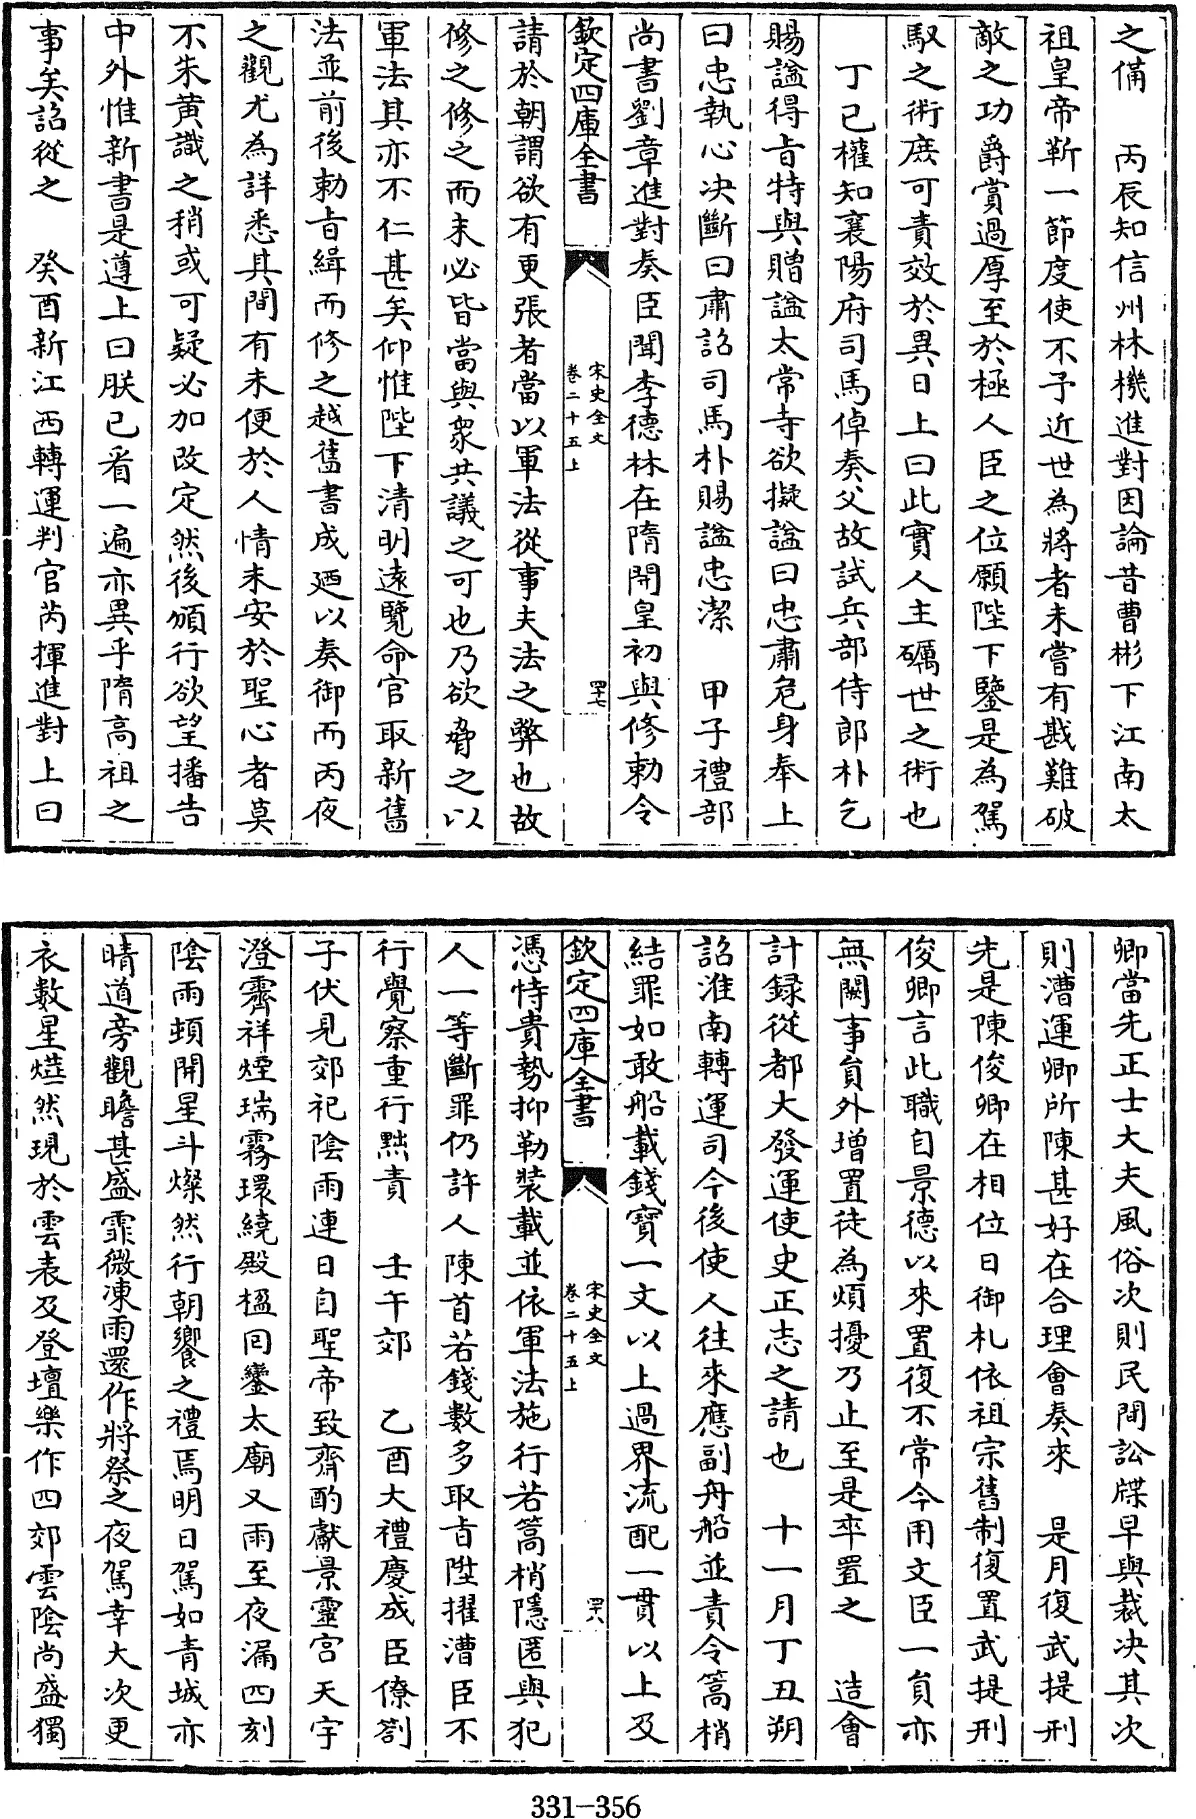 之備　丙辰知信州林機進對因論昔曹彬下江南太
祖皇帝靳一節度使不予近世為將者未嘗有戡難破
敵之功爵賞過厚至於極人臣之位願陛下鑒是為駕
馭之術庶可責效於異日上曰此實人主礪世之術也
丁巳權知襄陽府司馬倬奏父故試兵部侍郎朴乞
賜諡得旨特與贈諡太常寺欲擬諡曰忠肅危身奉上
曰忠執心決斷曰肅詔司馬朴賜諡忠潔　甲子禮部
尚書劉章進對奏臣聞李德林在隋開皇初與修勅令
欽定四庫全書
宋史全文
卷二十五上
四十七
請於朝謂欲有更張者當以軍法從事夫法之弊也故
修之修之而未必皆當與衆共議之可也乃欲脅之以
軍法其亦不仁甚矣仰惟陛下清明遠覽命官取新舊
法並前後勅旨緝而修之越舊書成廼以奏御而丙夜
之觀尤為詳悉其間有未便於人情未安於聖心者莫
不朱黄識之稍或可疑必加改定然後頒行欲望播告
中外惟新書是遵上曰朕已看一遍亦異乎隋高祖之
事矣詔從之　癸酉新江西轉運判官芮揮進對上曰
卿當先正士大夫風俗次則民間訟牒早與裁決其次
則漕運卿所陳甚好在合理會奏來　是月復武提刑
先是陳俊卿在相位日御札依祖宗舊制復置武提刑
俊卿言此職自景德以來置復不常今用文臣一員亦
無闕事員外增置徒為煩擾乃止至是卒置之　造會
計録從都大發運使史正志之請也　十一月丁丑朔
詔淮南轉運司今後使人往來應副舟船並責令篙梢
結罪如敢船載錢寶一文以上過界流配一貫以上及
欽定四庫全書
宋史全文
卷二十五上
四十八
憑恃貴勢抑勒裝載並依軍法施行若篙梢隱匿與犯
人一等斷罪仍許人陳首若錢數多取旨陞擢漕臣不
行覺察重行黜責　壬午郊　乙酉大禮慶成臣僚劄
子伏見郊祀陰雨連日自聖帝致齋酌獻景靈宫天宇
澄霽祥煙瑞霧環繞殿楹回鑾太廟又雨至夜漏四刻
陰雨頓開星斗燦然行朝饗之禮焉明日駕如青城亦
晴道旁觀瞻甚盛霏微凍雨還作將祭之夜駕幸大次更
衣數星爗然現於雲表及登壇樂作四郊雲陰尚盛獨
331-356